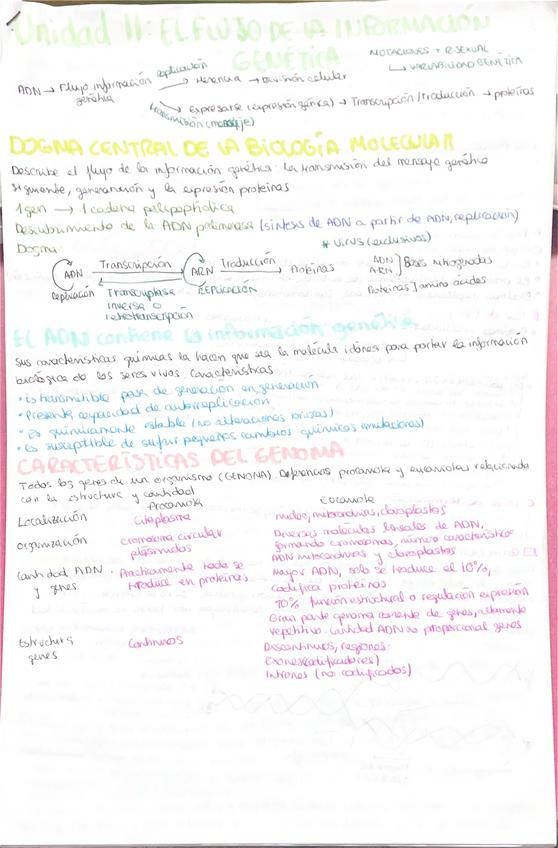 Unidad 11: EL FLUJO DE LA INFORMACIÓN
GENÉTICA
MUTACIONES + R. SEXUAL
↳ VARIABILIDAD GENÉTICA
replicación
ADN → Flujo información → Herencia → División celular
genética
→ Expresarse (expresión génica) → Transcripción/Traducción → proteínas
transmisión (mensaje)
DOGMA CENTRAL DE LA BIOLOGÍA MOLECULAR
Describe el flujo de la información genética: la transmisión del mensaje genético
siguiente, generanción y la expresión proteínas
1 gen → 1 cadena polipeptídica
Descubrimiento de la ADN polimerasa (síntesis de ADN a partir de ADN, replicación)
Dogma
* Virus (exclusivos)
ADN Transcripción ARN Traducción Proteínas
replicación Transcriptasa REPLICACIÓN
inversa o
retrotranscripción
ADN
ARN ] Bases nitrogenadas
Proteínas ] amino ácidos
EL ADN contiene la información genética
Sus características químicas la hacen que sea la molécula idónea para portar la información
biológica de los seres vivos. Características
• Es transmitible pasa de generación en generación
• Presenta capacidad de autorreplicación
• Es químicamente estable (no alteraciones)
• Es susceptible de sufrir pequeños cambios químicos (mutaciones)
CARACTERÍSTICAS DEL GENOMA
Todos los genes de un organismo (GENOMA). Diferencias procariota y eucariotas relacionado
con la estructura y cantidad
Procariota Eucariota
Localización Citoplasma núcleo, mitocondrias, cloroplastos
Organización cromosoma circular plásmidos Diversas moléculas lineales de ADN,
formando cromosomas, número característico
ADN mitocondrias y cloroplastos
Cantidad ADN y genes Prácticamente todo se traduce en proteínas Mayor ADN, solo se traduce el 10%,
codifica proteínas
70% función estructural o regulación expresión
Gran parte genoma carente de genes, altamente
repetitivo. Cantidad ADN no proporcional genes
Estructura genes Continuos Discontinuos, regiones:
Exones (codificadores)
Intrones (no codificados)